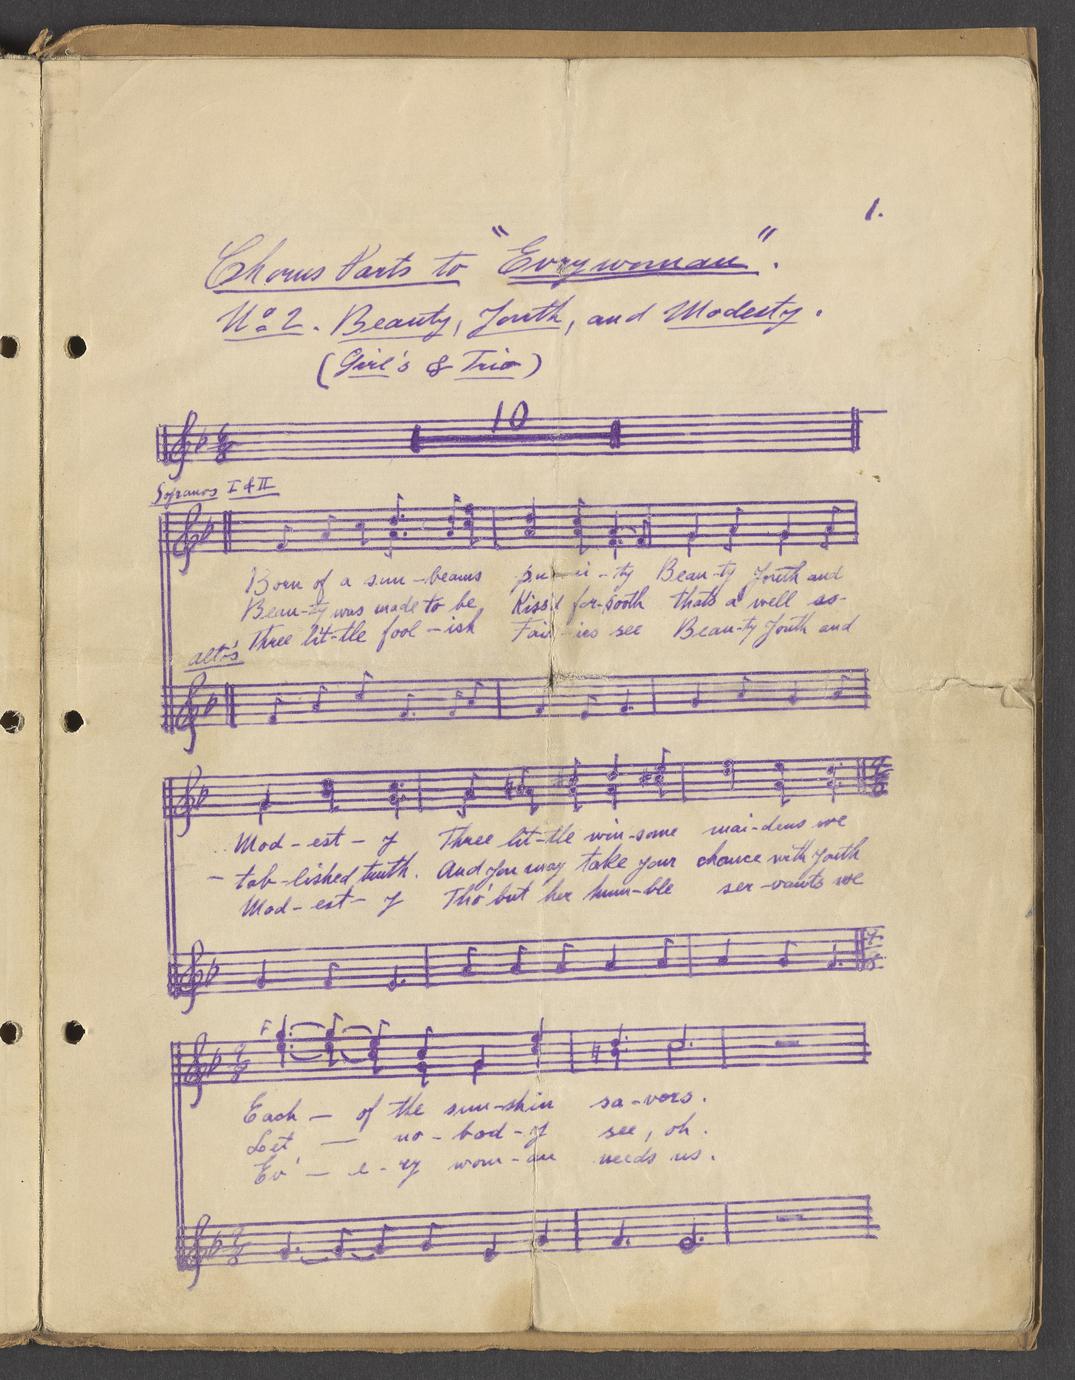 1.
Chorus Parts to "Evrywoman".
No 2. Beauty, Youth, and Modesty.
(Girl's & Trio)
10
Sopranos I & II
Born of a sun-beams pu-ri-ty Beau-ty Youth and
Beau-ty was made to be Kiss'd for-sooth thats a well es-
Three lit-tle fool-ish Fair-ies see Beau-ty Youth and
Alto's
Mod-est-y Three lit-tle win-some mai-dens we
-tab-lished truth. And you may take your chance with youth
Mod-est-y Tho' but her hum-ble ser-vants we
F
Each — of the sun-shin sa-vors.
Let — no-bod-y see, oh.
Ev' — e-ry wom-an needs us.